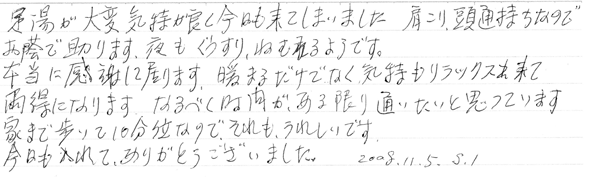 足湯が大変気持が良く今日も来てしまいました 肩こり、頭通持ちなので
お蔭で助ります、夜もぐっすり、ねむれるようです。
本当に感謝して居ります、暖まるだけでなく、気持もリラックス出来て
両得になります なるべく時間が、ある限り通いたいと思っています
家まで歩いて10分位なので、それも、うれしいです、
今日も入れて、ありがとうございました。 2008.11.5. S.I